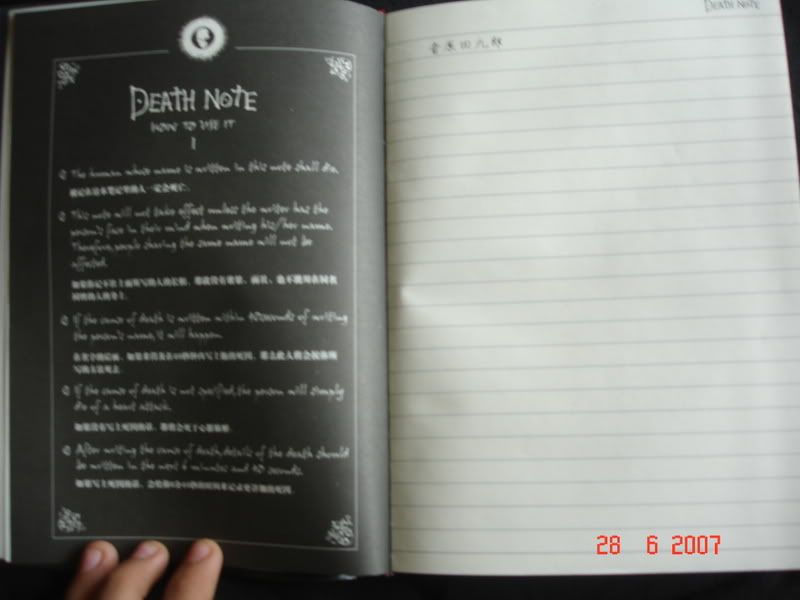 DEATH NOTE
DEATH NOTE
HOW TO USE IT
I
The human whose name is written in this note shall die.
被记在这本笔记里的人一定会死亡。
This note will not take effect unless the writer has the
person's face in their mind when writing his/her name.
Therefore, people sharing the same name will not be
affected.
如果你记不住上面所写的人的长相，那就没有效果。而且，也不能用在同名
同姓的人的身上。
If the cause of death is written within 40seconds of writing
the person's name, it will happen.
写的方法死去。
If the cause of death is not specified, the person will simply
die of a heart attack.
如果没有写上死因的话，都将会死于心脏麻痹。
After writing the cause of death, details of the death should
be written in the next 6 minutes and 40 seconds.
如果写上死因的话，
音原田九郎
28 6 2007